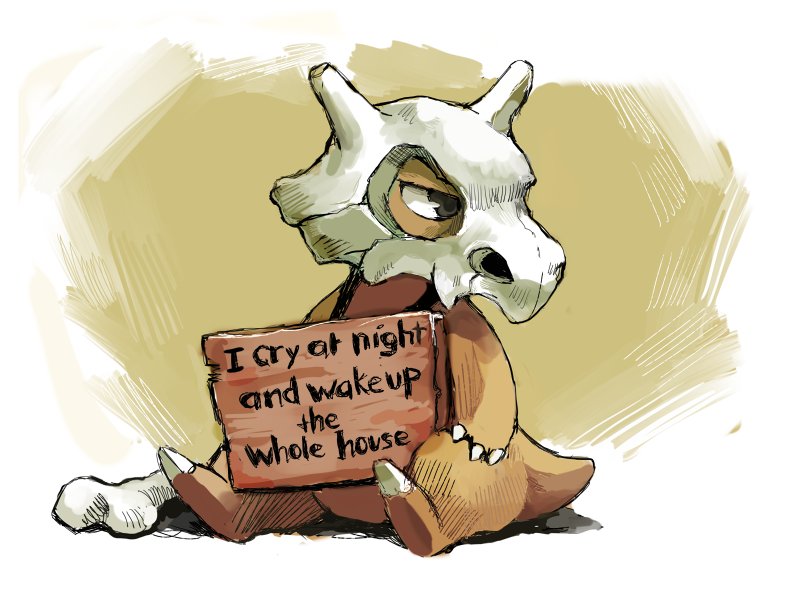 I cry at night
and wake up
the
whole house